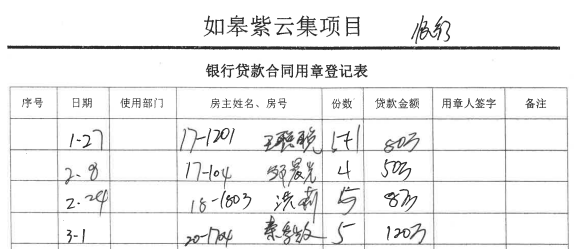 如皋紫云集项目
银行贷款合同用章登记表
序号 日期 使用部门 房主姓名、房号 份数 贷款金额 用章人签字 备注
1-27 17-1201 5+1 80万
2.8 17-104 邹晨光 4 50万
2.24 18-1803 洪莉 5 8万
3-1 20-1704 5 120万